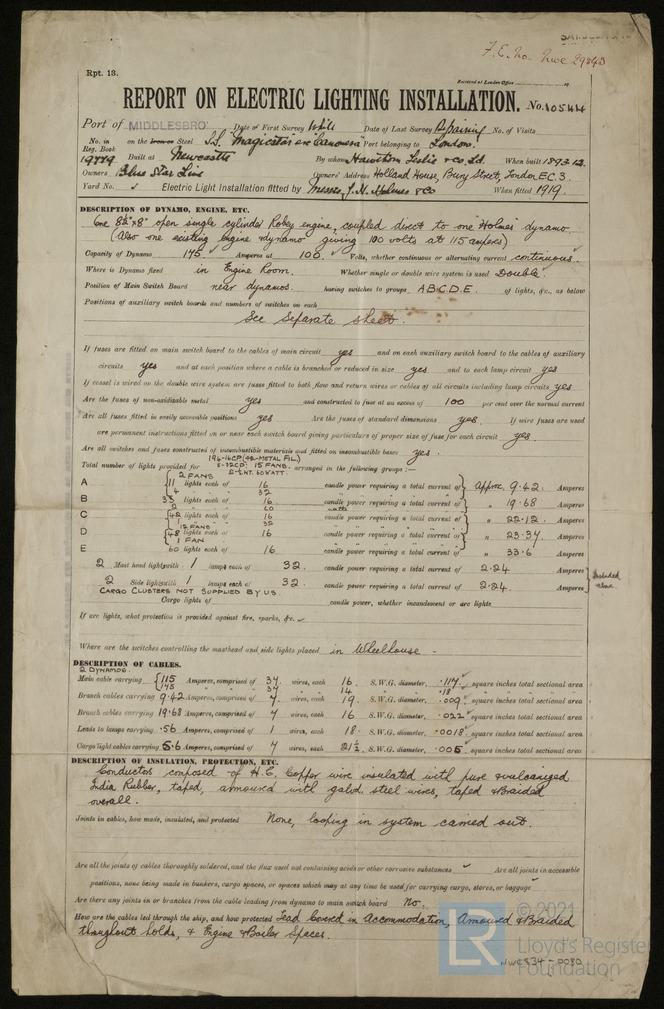 F.E. No. Nwc 29843
Rpt. 13.
Received at London Office
REPORT ON ELECTRIC LIGHTING INSTALLATION. No. 10544
Port of MIDDLESBRO' Date of First Survey While Date of Last Survey Repairing No. of Visits
No. in Reg. Book on the Iron or Steel S.S. "Magicstar" ex "Canonesa" Port belonging to London.
19779 Built at Newcastle By whom Hawthorn Leslie & Co. Ld. When built 1893-12
Owners Blue Star Line Owners' Address Holland House, Bury Street, London E.C.3.
Yard No. Electric Light Installation fitted by Messrs. J. H. Holmes & Co When fitted 1919.
DESCRIPTION OF DYNAMO, ENGINE, ETC.
One 8½" x 8" open single cylinder Robey engine, coupled direct to one "Holmes" dynamo
(Also one existing engine & dynamo giving 100 volts at 115 amperes)
Capacity of Dynamo 175 Amperes at 100 Volts, whether continuous or alternating current continuous
Where is Dynamo fixed in Engine Room. Whether single or double wire system is used Double
Position of Main Switch Board near dynamos. having switches to groups A B C D E. of lights, &c., as below
Positions of auxiliary switch boards and numbers of switches on each
See Separate sheet.
If fuses are fitted on main switch board to the cables of main circuit yes and on each auxiliary switch board to the cables of auxiliary
circuits yes and at each position where a cable is branched or reduced in size yes and to each lamp circuit yes
If vessel is wired on the double wire system are fuses fitted to both flow and return wires or cables of all circuits including lamp circuits yes
Are the fuses of non-oxidizable metal yes and constructed to fuse at an excess of 100 per cent over the normal current
Are all fuses fitted in easily accessible positions yes Are the fuses of standard dimensions yes. If wire fuses are used
are permanent instructions fitted on or near each switch board giving particulars of proper size of fuse for each circuit yes.
Are all switches and fuses constructed of incombustible materials and fitted on incombustible bases yes.
196-16CP. (42-METAL FIL.)
Total number of lights provided for 5-32CP. 15 FANS. arranged in the following groups :—
2 FANS
A 11 lights each of 16 candle power requiring a total current of Approx. 9.42 Amperes
4 32
B 35 lights each of 16 candle power requiring a total current of " 19.68 Amperes
2 60 watts
C 42 lights each of 16 candle power requiring a total current of " 22.12 Amperes
1 32
12 FANS
D 48 lights each of 16 candle power requiring a total current of " 23.34 Amperes
1 FAN
E 60 lights each of 16 candle power requiring a total current of " 33.6 Amperes
2 Mast head lights with 1 lamps each of 32. candle power requiring a total current of 2.24 Amperes
2 Side lights with 1 lamps each of 32. candle power requiring a total current of 2.24. Amperes
Included above
CARGO CLUSTERS NOT SUPPLIED BY US
Cargo lights of candle power, whether incandescent or arc lights
If arc lights, what protection is provided against fire, sparks, &c.
Where are the switches controlling the masthead and side lights placed in Wheelhouse.
DESCRIPTION OF CABLES.
2 DYNAMOS.
Main cable carrying 115 Amperes, comprised of 37 wires, each 16 S.W.G. diameter, .117 square inches total sectional area
175 37 14 .18
Branch cables carrying 9.42 Amperes, comprised of 7 wires, each 19 S.W.G. diameter, .009 square inches total sectional area
Branch cables carrying 19.68 Amperes, comprised of 7 wires, each 16 S.W.G. diameter, .022 square inches total sectional area
Leads to lamps carrying .56 Amperes, comprised of 1 wires, each 18. S.W.G. diameter, .0018 square inches total sectional area
Cargo light cables carrying 5.6 Amperes, comprised of 7 wires, each 21½ S.W.G. diameter, .005 square inches total sectional area
DESCRIPTION OF INSULATION, PROTECTION, ETC.
Conductors composed of H.C. Copper wire insulated with pure & vulcanized
India Rubber, taped, armoured with galvd steel wires, taped & Braided
overall.
Joints in cables, how made, insulated, and protected None, looping in system carried out.
Are all the joints of cables thoroughly soldered, and the flux used not containing acids or other corrosive substances Are all joints in accessible
positions, none being made in bunkers, cargo spaces, or spaces which may at any time be used for carrying cargo, stores, or baggage
Are there any joints in or branches from the cable leading from dynamo to main switch board No.
How are the cables led through the ship, and how protected Lead Covered in Accommodation, Armoured & Braided
throughout holds, & Engine & Boiler Spaces.
© 2021
LR
Lloyd's Register
Foundation
NWC834-0080